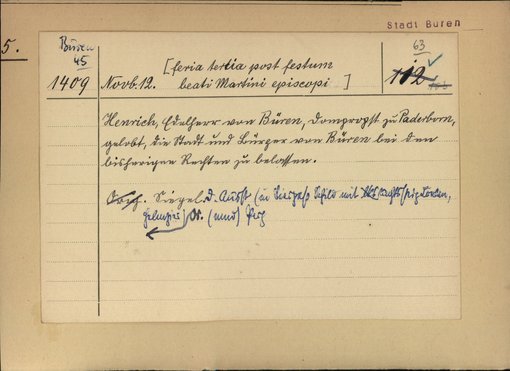 Stadt Büren
5.
Büren
45
63
[feria tertia post festum
1409 Novb. 12. beati Martini episcopi ] 112
Henrich, Edelherr von Büren, Dompropst zu Paderborn,
gelobt, die Stadt und Bürger von Büren bei den
bisherigen Rechten zu belassen.
Siegel d. Ausst (in Schild mit
Or. (mnd) Perg